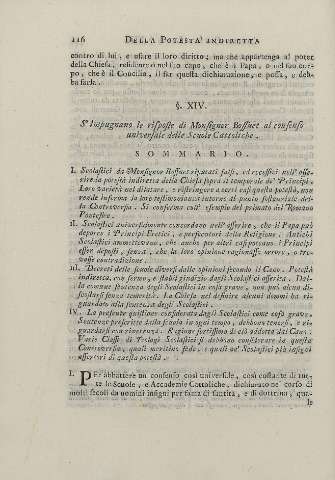 116 DELLA POTESTA' INDIRETTA
contro di lui, e usare il loro diritto; ma che appartenga al poter
della Chiesa, residente o nel suo capo, che è il Papa, o nel suo cor-
po, che è il Concilio, il far questa dichiarazione, e possa, e deb-
ba farla.
§. XIV.
S'impugnano le risposte di Monsignor Bossuet al consenso
universale delle Scuole Cattoliche.
SOMMARIO.
I. Scolastici da Monsignor Bossuet riputati falsi, ed eccessivi nell' asse-
rire la potestà indiretta della Chiesa sopra il temporale de' Principi.
Loro varietà nel dilatare, o restringere a certi casi questa potestà, non
rende infermo la loro testimonianza intorno al punto sustanziale del-
la Controversia. Si conferma coll' esempio del primato del Romano
Pontefice.
II. Scolastici universalmente concordano nell' asserire, che il Papa può
deporre i Principi Eretici, e persecutori della Religione. Antichi
Scolastici ammettevano, che anche per altri casi potevano i Principi
esser deposti, senza, che la loro opinione ragionasse errore, o tro-
vasse contraddizione.
III. Decreti delle scuole diversi dalle opinioni secondo il Cano. Potestà
indiretta, con fermo, e stabil giudizio dagli Scolastici asserita. Del-
la comune sentenza degli Scolastici in cosa grave, non può alcun di-
scostarsi senza temerità. La Chiesa nel definire alcuni dommi ha ri-
guardato alla sentenza degli Scolastici.
IV. La presente quistione considerata dagli Scolastici come cosa grave.
Sentenze proferite dalla scuola in ogni tempo, debbono tenersi, e ri-
guardarsi con riverenza. Ragione fortissima di ciò addotta dal Cano:
Varie Classi di Teologi Scolastici si debbono considerare in questa
Controversia, quali meritino fede, e quali de' Scolastici più insigni
assertori di questa potestà.
I. PEr abbattere un consenso così universale, così costante di tut-
te le Scuole, e Accademie Cattoliche, dichiarato ne' corso di
molti secoli da uomini insigni per fama di santità, e di dottrina, qua-
le